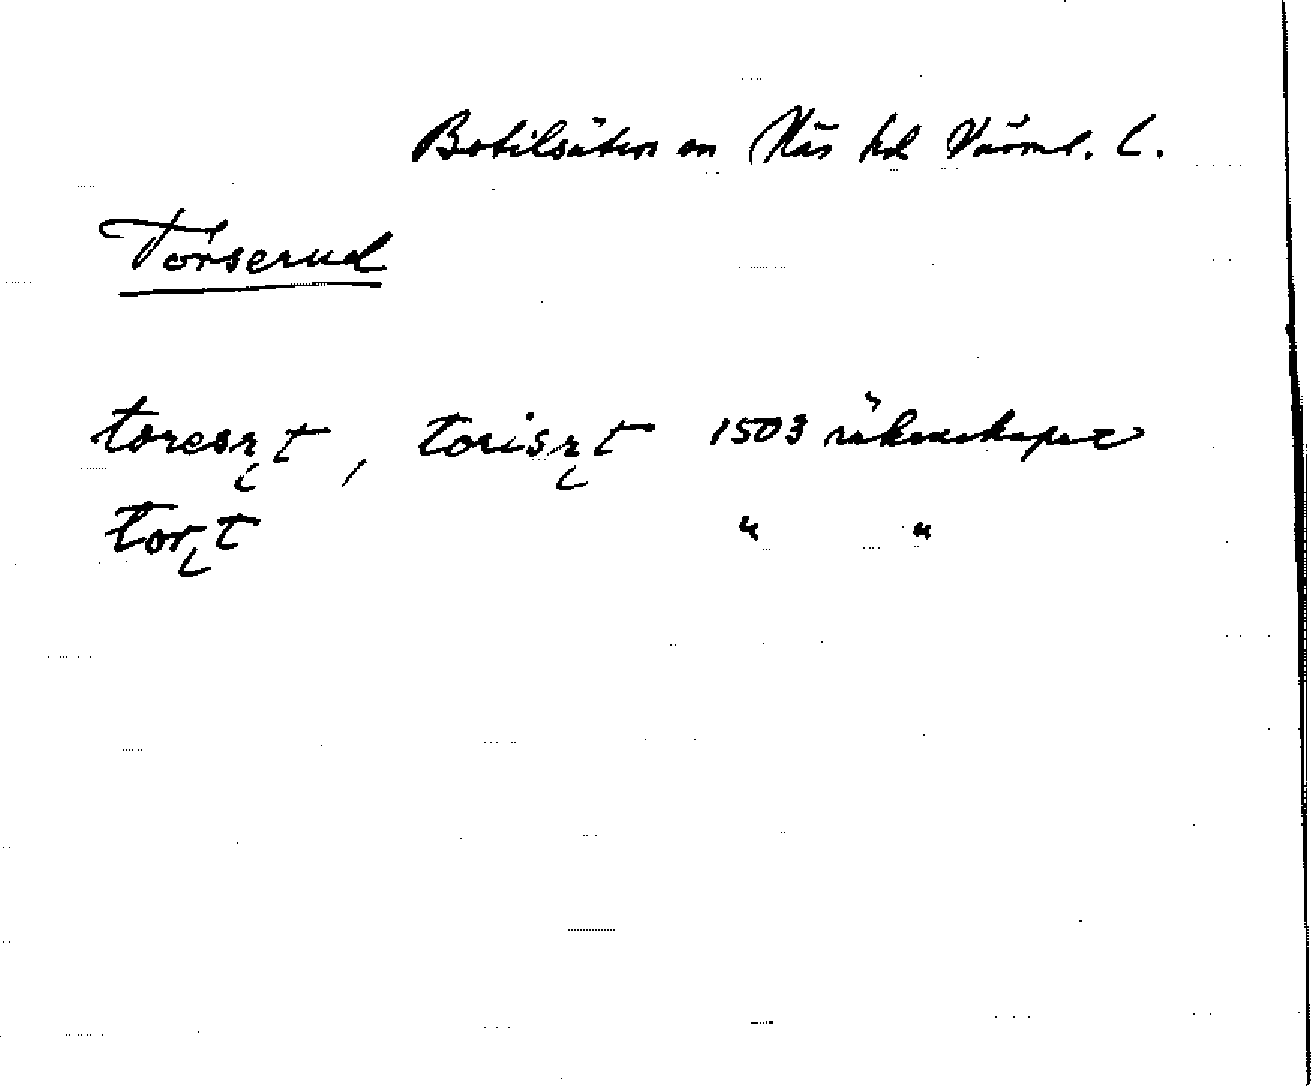 Botilsäters sn Näs hd Värml. l.
Törserud
toresrt, torisrt 1503 räkenskaper
tort " "